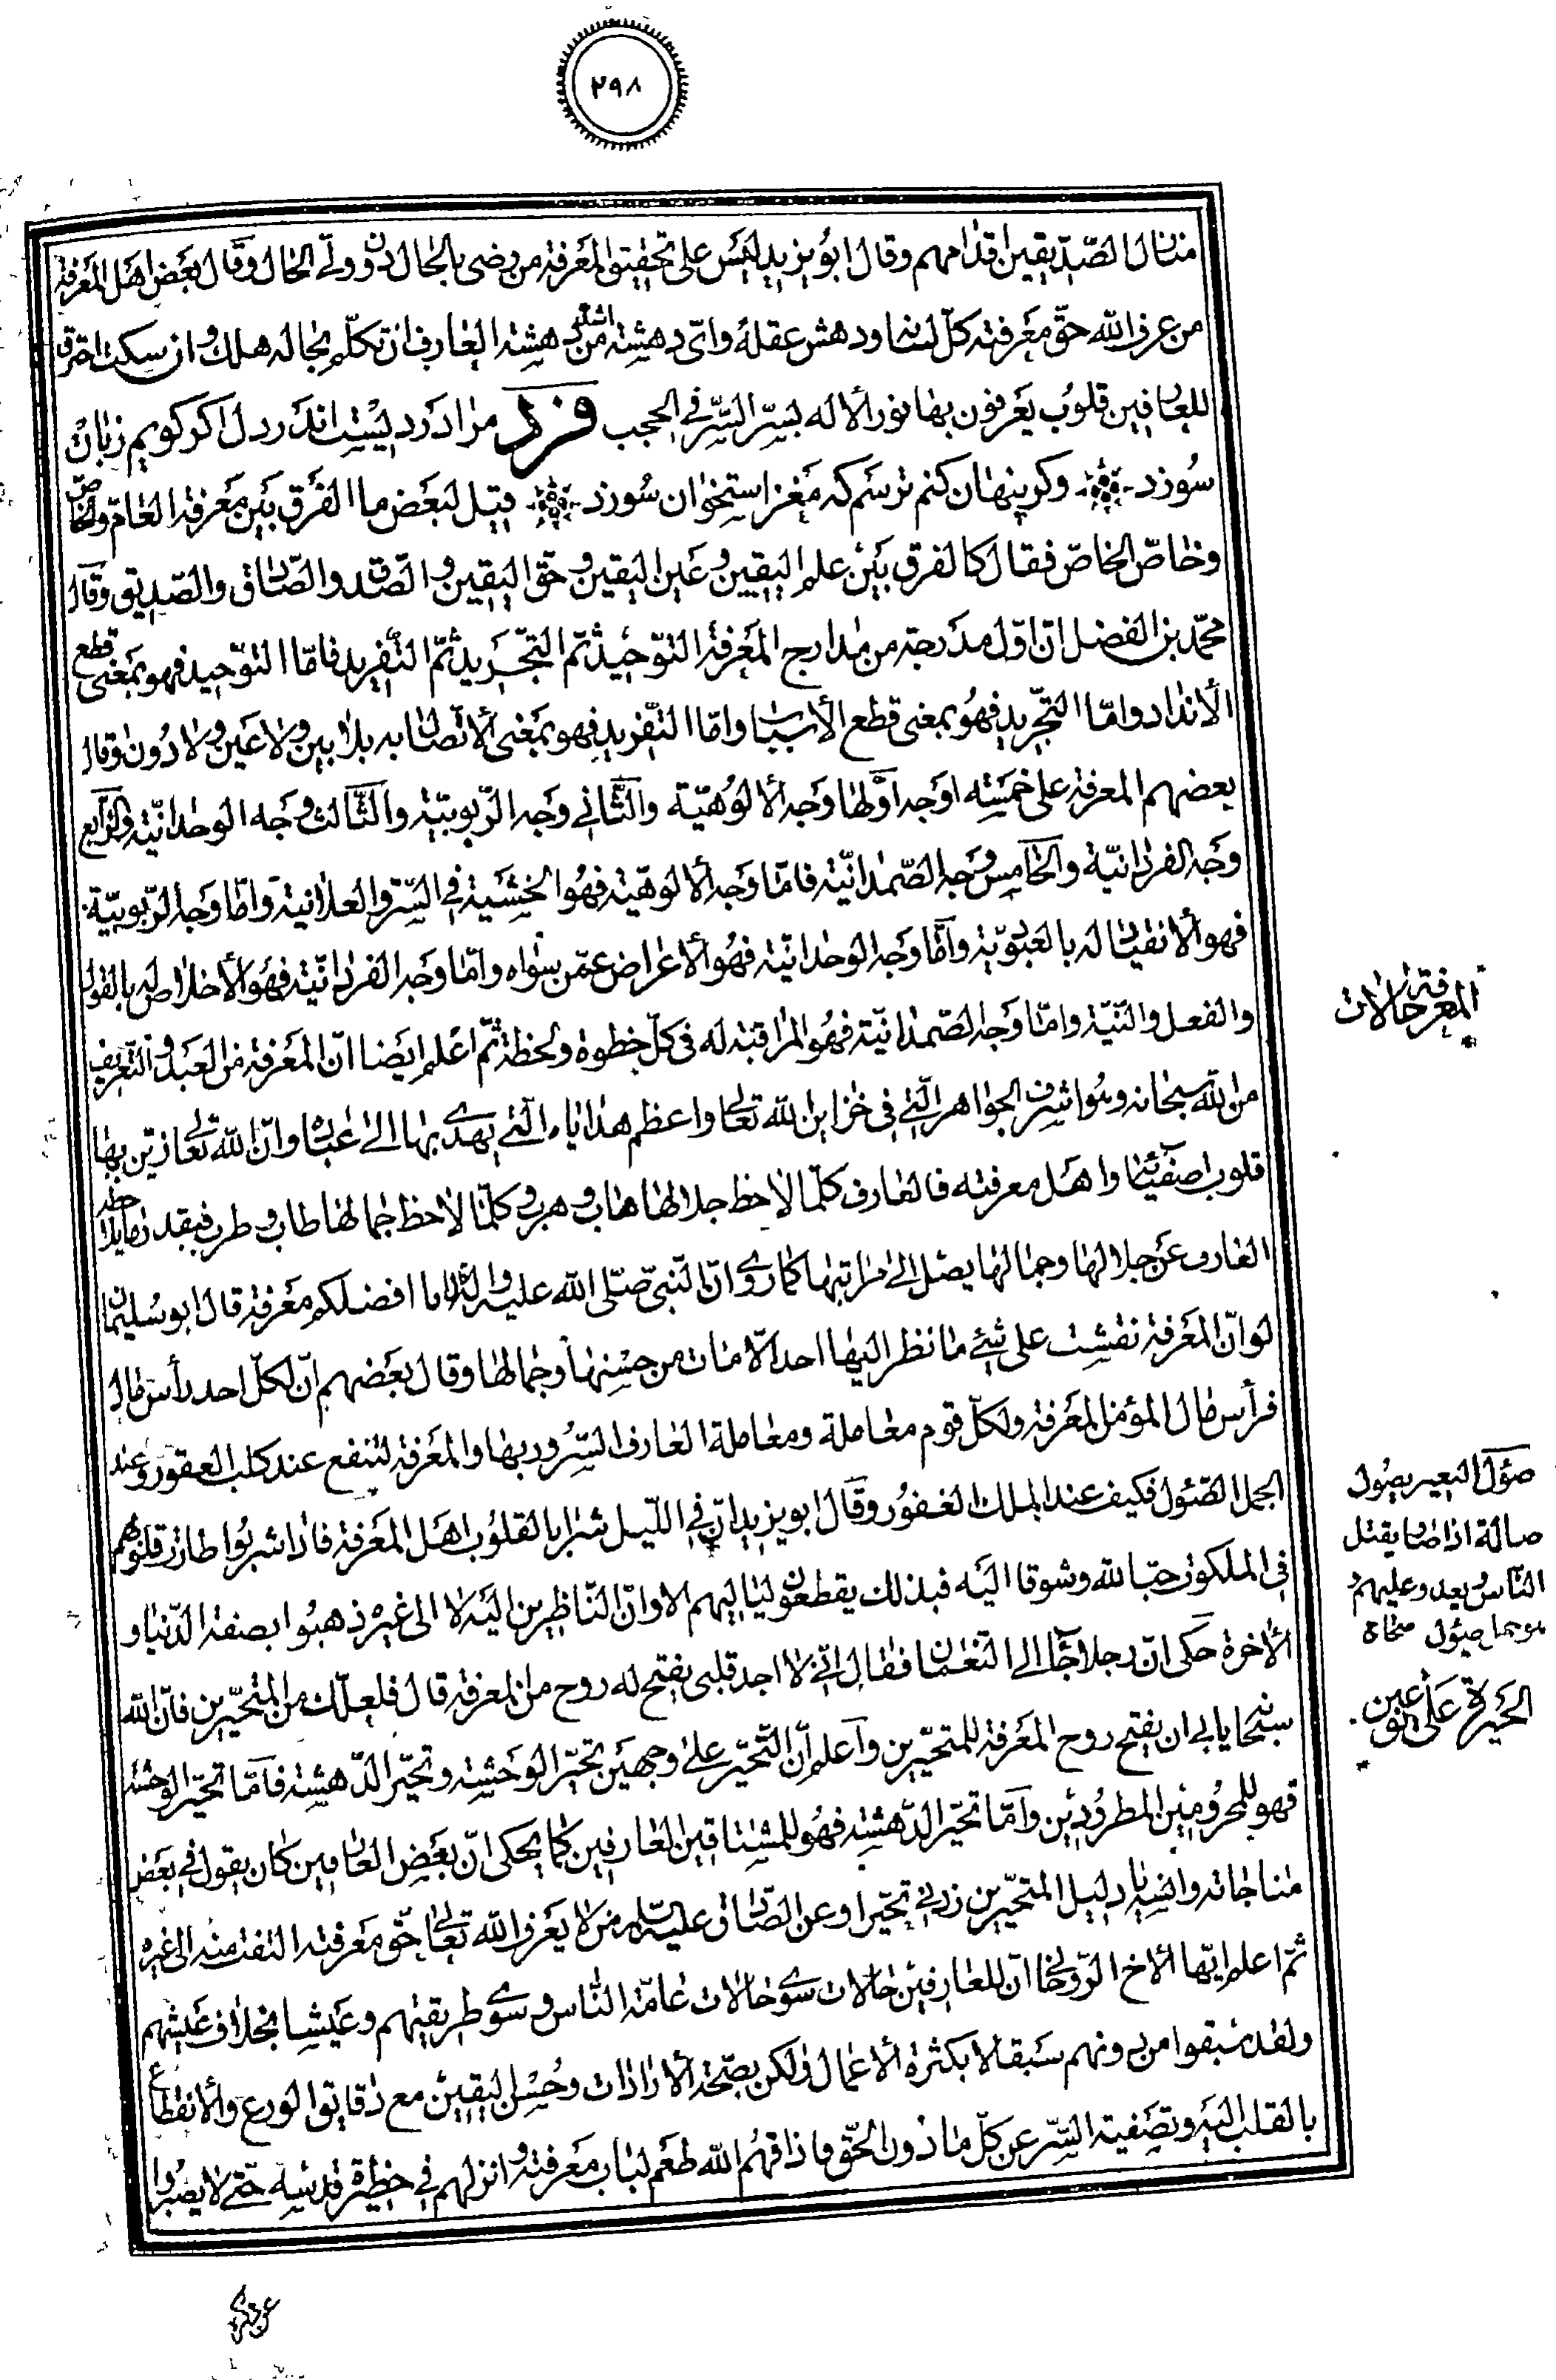 ٢٩٨
منال الصّدّيقين اقدامهم وقال ابويزيد ليس على تحقيق المعرفة من رضى بالحال دون ولّى الحال وقال بعض اهل المعرفة
من عرف الله حقّ معرفته كلّ لسانه ودهش عقله واىّ دهشة اشدّ من دهشة العارف ان تكلّم بحاله هلك وان سكت احترق
للعارفين قلوب يعرفون بها نور الاله بسرّ السّرّ فى الحجب فرد مرا دردیست اندر دل اکر کویم زبان
سوزد وکر پنهان کنم ترسم که مغز استخوان سوزد قيل لبعض ما الفرق بين معرفة العامّ والخاصّ
وخاصّ الخاصّ فقال كالفرق بين علم اليقين وعين اليقين وحق اليقين والصّدق والصّادق والصّديق وقال
محمّد بن الفضل انّ اوّل مدرجة من مدارج المعرفة التوحيد ثمّ التجريد ثمّ التفريد فامّا التوحيد فهو بمعنى قطع
الانداد وامّا التجريد فهو بمعنى قطع الاسباب وامّا التفريد فهو بمعنى الاتّصال به بلا بين ولا عين ولا دون وقال
بعضهم المعرفة على خمسة اوجه اوّلها وجه الالوهيّة والثّانى وجه الرّبوبيّة والثّالث وجه الوحدانيّة والرّابع
وجه الفردانيّة والخامس وجه الصّمدانيّة فامّا وجه الالوهيّة فهو الخشية فى السّرّ والعلانية وامّا وجه الرّبوبيّة
فهو الانقياد له بالعبوديّة وامّا وجه الوحدانيّة فهو الاعراض عمّن سواه وامّا وجه الفردانيّة فهو الاخلاص له بالقول
والفعل والنّيّة وامّا وجه الصّمدانيّة فهو المراقبة له فى كلّ خطوة ولحظة ثمّ اعلم ايضا انّ المعرفة من العبد والتّعريف
من الله سبحانه وهو اشرف الجواهر الّتى فى خزاين الله تعالى واعظم هداياه الّتى يهدى بها الى عباده وانّ الله تعالى زيّن بها
قلوب اصفيائه واهل معرفته فالعارف كلّما لاحظ جلالها هاب وهرب وكلّما لاحظ جمالها طاب وطرب فبقدر ما يلاحظ
العارف عن جلالها وجمالها يصل الى مراتبها كما روى انّ النّبىّ صلّى الله عليه وآله قال انا افضلكم معرفة قال ابو سليمان
لو انّ المعرفة نقشت على شئ ما نظر اليها احد الّا مات من حسنها وجمالها وقال بعضهم انّ لكلّ احد رأس مال
فرأس مال المؤمن المعرفة ولكلّ قوم معاملة ومعاملة العارف السّرور بها والمعرفة لتنفع عند كلب العقور وعند
الجمل الصّئول فكيف عند الملك الغفور وقال ابويزيد انّ فى اللّيل شرابا لقلوب اهل المعرفة فاذا شربوا طارت قلوبهم
فى الملكوت حبّا لله وشوقا اليه فبذلك يقطعون لياليهم الا وانّ النّاظرين اليه لا الى غيره ذهبوا بصفة الدّنيا و
الآخرة حكى انّ رجلا جاء الى النّعمان فقال انّى لا اجد قلبى يفتح له روح من المعرفة قال فلعلّك من المتحيّرين فانّ الله
سبحانه يأبى ان يفتح روح المعرفة للمتحيّرين واعلم انّ التّحيّر على وجهين تحيّر الوحشة وتحيّر الدّهشة فامّا تحيّر الوحشة
فهو للمحرومين المطرودين وامّا تحيّر الدّهشة فهو للمشتاقين العارفين كما يحكى انّ بعض العارفين كان يقول فى بعض
مناجاته وانسه يا دليل المتحيّرين زدنى تحيّرا وعن الصّادق عليه السلام من لا يعرف الله تعالى حقّ معرفته التفت منه الى غيره
ثمّ اعلم ايّها الاخ الرّوحانى انّ للعارفين حالات سوى حالات عامّة النّاس وسوى طريقتهم وعيشا بخلاف عيشهم
ولقد سبقوا من دونهم سبقا لا بكثرة الاعمال ولكن بصحّة الارادات وحسن اليقين مع دقايق الورع والانقطاع
بالقلب اليه وتصفية السّرّ عن كلّ ما دون الحقّ فاذاقهم الله طعم لباب معرفته وانزلهم فى حظيرة قدسه حتّى لا يصبروا
المعرفة حالات
صؤل البعير يصول
صالة اذا صار يقتل
النّاس ويعدو عليهم
الحيرة على نوعين